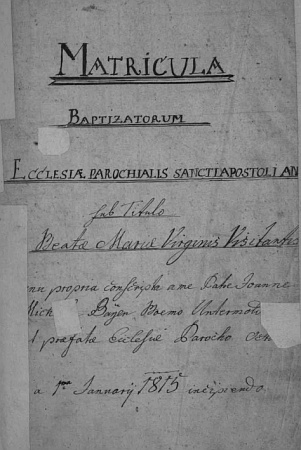 MATRICULA
BAPTIZATORUM
ECCLESIÆ PAROCHIALIS SANCTI APOSTOLI AN
sub Titulo
Beatæ Mariæ Virginis Visitantis
nu propria conscripta a me Patre Joanne
Mich Bayer Boemo
præfatæ Ecclesiæ Parocho
a 1ma Januarij 1815 incipiendo